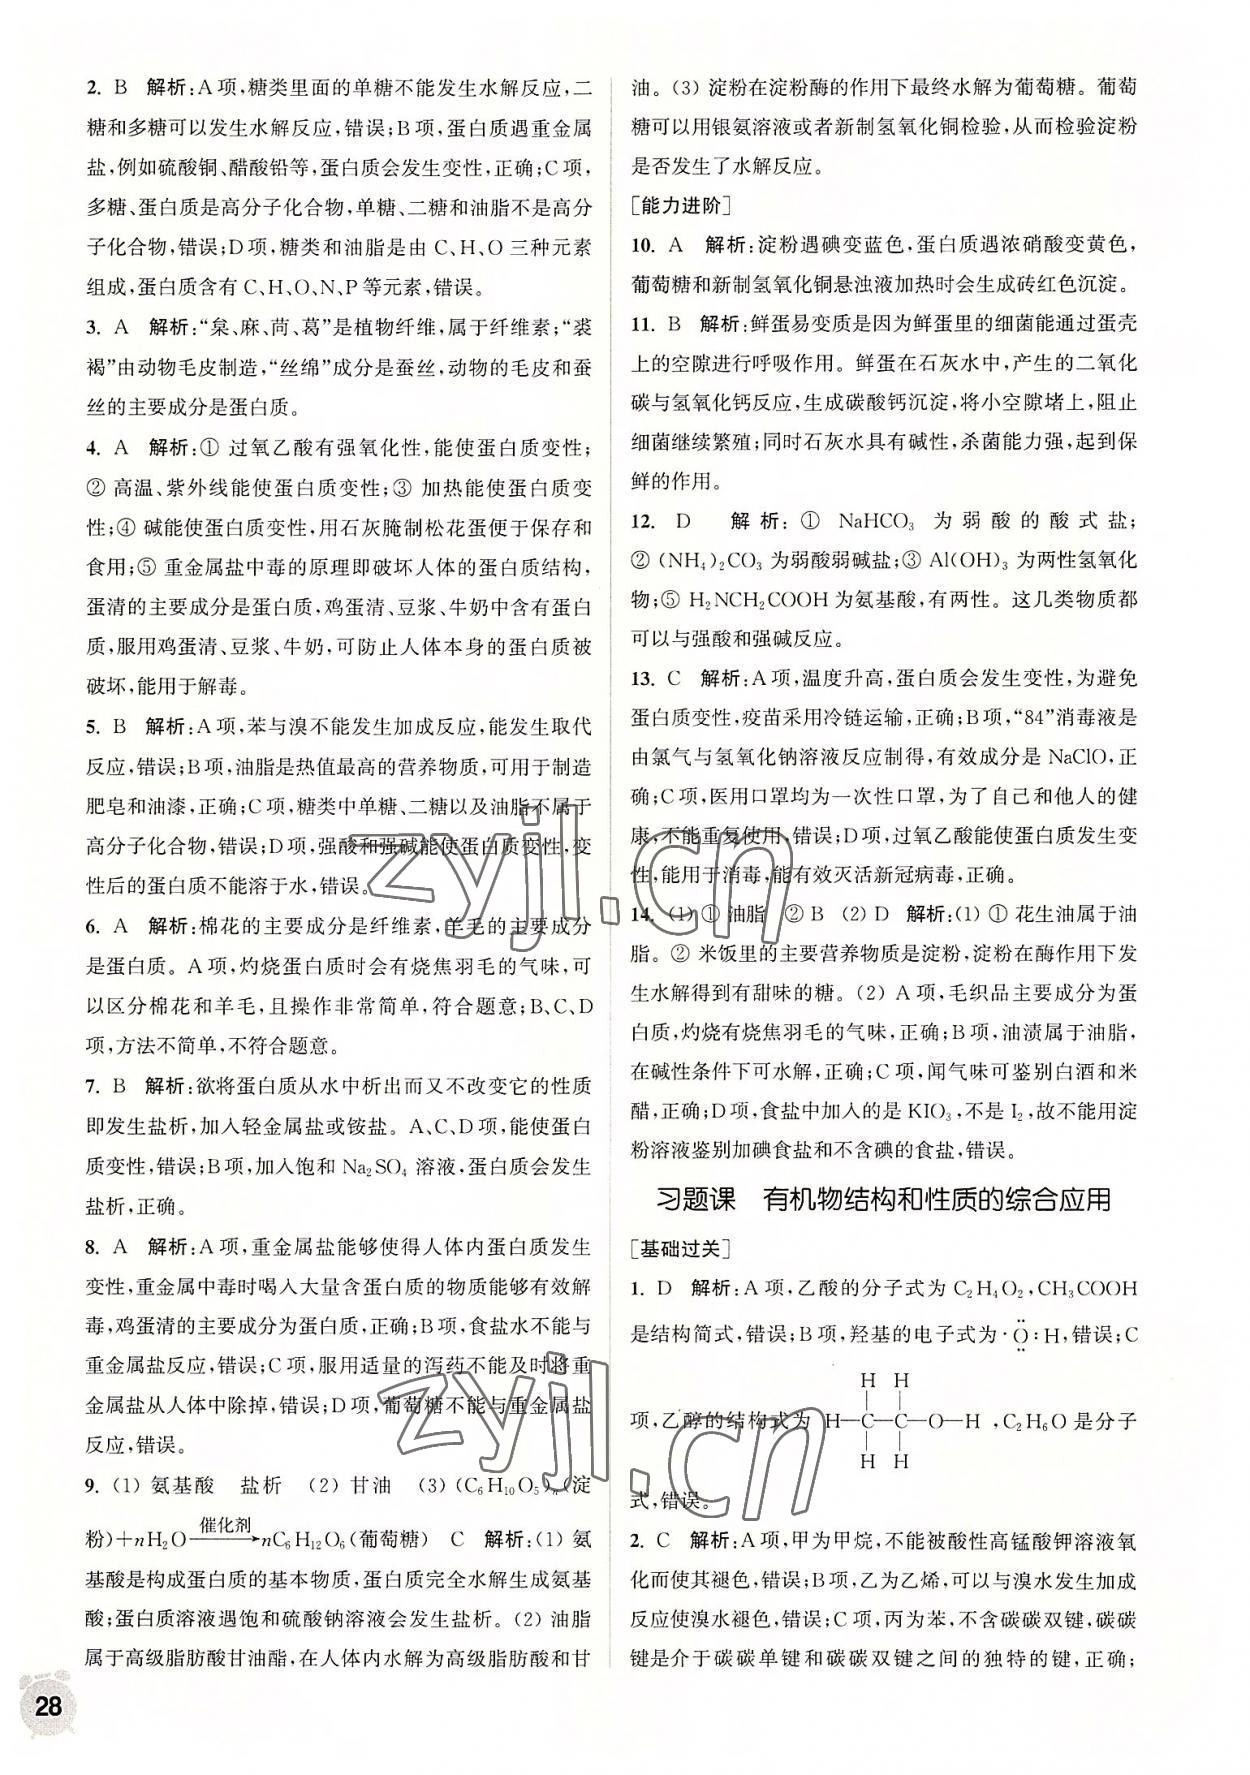 2. B 解析:A 项,糖类里面的单糖不能发生水解反应,二
糖和多糖可以发生水解反应,错误;B 项,蛋白质遇重金属
盐,例如硫酸铜、醋酸铅等,蛋白质会发生变性,正确;C 项,
多糖、蛋白质是高分子化合物,单糖、二糖和油脂不是高分
子化合物,错误;D 项,糖类和油脂是由 C、H、O 三种元素
组成,蛋白质含有 C、H、O、N、P 等元素,错误。
3. A 解析:“枲、麻、苘、葛”是植物纤维,属于纤维素;“裘
褐”由动物毛皮制造,“丝绵”成分是蚕丝,动物的毛皮和蚕
丝的主要成分是蛋白质。
4. A 解析:① 过氧乙酸有强氧化性,能使蛋白质变性;
② 高温、紫外线能使蛋白质变性;③ 加热能使蛋白质变
性;④ 碱能使蛋白质变性,用石灰腌制松花蛋便于保存和
食用;⑤ 重金属盐中毒的原理即破坏人体的蛋白质结构,
蛋清的主要成分是蛋白质,鸡蛋清、豆浆、牛奶中含有蛋白
质,服用鸡蛋清、豆浆、牛奶,可防止人体本身的蛋白质被
破坏,能用于解毒。
5. B 解析:A 项,苯与溴不能发生加成反应,能发生取代
反应,错误;B 项,油脂是热值最高的营养物质,可用于制造
肥皂和油漆,正确;C 项,糖类中单糖、二糖以及油脂不属于
高分子化合物,错误;D 项,强酸和强碱能使蛋白质变性,变
性后的蛋白质不能溶于水,错误。
6. A 解析:棉花的主要成分是纤维素,羊毛的主要成分
是蛋白质。A 项,灼烧蛋白质时会有烧焦羽毛的气味,可
以区分棉花和羊毛,且操作非常简单,符合题意;B、C、D
项,方法不简单,不符合题意。
7. B 解析:欲将蛋白质从水中析出而又不改变它的性质
即发生盐析,加入轻金属盐或铵盐。A、C、D 项,能使蛋白
质变性,错误;B 项,加入饱和 Na₂SO₄ 溶液,蛋白质会发生
盐析,正确。
8. A 解析:A 项,重金属盐能够使得人体内蛋白质发生
变性,重金属中毒时喝入大量含蛋白质的物质能够有效解
毒,鸡蛋清的主要成分为蛋白质,正确;B 项,食盐水不能与
重金属盐反应,错误;C 项,服用适量的泻药不能及时将重
金属盐从人体中除掉,错误;D 项,葡萄糖不能与重金属盐
反应,错误。
9. (1) 氨基酸 盐析 (2) 甘油 (3) (C₆H₁₀O₅)ₙ(淀
粉)+nH₂O —催化剂→ nC₆H₁₂O₆(葡萄糖) C 解析:(1) 氨
基酸是构成蛋白质的基本物质,蛋白质完全水解生成氨基
酸;蛋白质溶液遇饱和硫酸钠溶液会发生盐析。(2) 油脂
属于高级脂肪酸甘油酯,在人体内水解为高级脂肪酸和甘
28
油。(3) 淀粉在淀粉酶的作用下最终水解为葡萄糖。葡萄
糖可以用银氨溶液或者新制氢氧化铜检验,从而检验淀粉
是否发生了水解反应。
[能力进阶]
10. A 解析:淀粉遇碘变蓝色,蛋白质遇浓硝酸变黄色,
葡萄糖和新制氢氧化铜悬浊液加热时会生成砖红色沉淀。
11. B 解析:鲜蛋易变质是因为鲜蛋里的细菌能通过蛋壳
上的空隙进行呼吸作用。鲜蛋在石灰水中,产生的二氧化
碳与氢氧化钙反应,生成碳酸钙沉淀,将小空隙堵上,阻止
细菌继续繁殖;同时石灰水具有碱性,杀菌能力强,起到保
鲜的作用。
12. D 解析:① NaHCO₃ 为弱酸的酸式盐;
② (NH₄)₂CO₃ 为弱酸弱碱盐;③ Al(OH)₃ 为两性氢氧化
物;⑤ H₂NCH₂COOH 为氨基酸,有两性。这几类物质都
可以与强酸和强碱反应。
13. C 解析:A 项,温度升高,蛋白质会发生变性,为避免
蛋白质变性,疫苗采用冷链运输,正确;B 项,“84”消毒液是
由氯气与氢氧化钠溶液反应制得,有效成分是 NaClO,正
确;C 项,医用口罩均为一次性口罩,为了自己和他人的健
康,不能重复使用,错误;D 项,过氧乙酸能使蛋白质发生变
性,能用于消毒,能有效灭活新冠病毒,正确。
14. (1) ① 油脂 ② B (2) D 解析:(1) ① 花生油属于油
脂。② 米饭里的主要营养物质是淀粉,淀粉在酶作用下发
生水解得到有甜味的糖。(2) A 项,毛织品主要成分为蛋
白质,灼烧有烧焦羽毛的气味,正确;B 项,油渍属于油脂,
在碱性条件下可水解,正确;C 项,闻气味可鉴别白酒和米
醋,正确;D 项,食盐中加入的是 KIO₃,不是 I₂,故不能用淀
粉溶液鉴别加碘食盐和不含碘的食盐,错误。
习题课 有机物结构和性质的综合应用
[基础过关]
1. D 解析:A 项,乙酸的分子式为 C₂H₄O₂,CH₃COOH
是结构简式,错误;B 项,羟基的电子式为 ·Ö̤:H,错误;C
H H
项,乙醇的结构式为 H—C—C—O—H ,C₂H₆O 是分子
H H
式,错误。
2. C 解析:A 项,甲为甲烷,不能被酸性高锰酸钾溶液氧
化而使其褪色,错误;B 项,乙为乙烯,可以与溴水发生加成
反应使溴水褪色,错误;C 项,丙为苯,不含碳碳双键,碳碳
键是介于碳碳单键和碳碳双键之间的独特的键,正确;
zyjl.cn
zyjl.cn